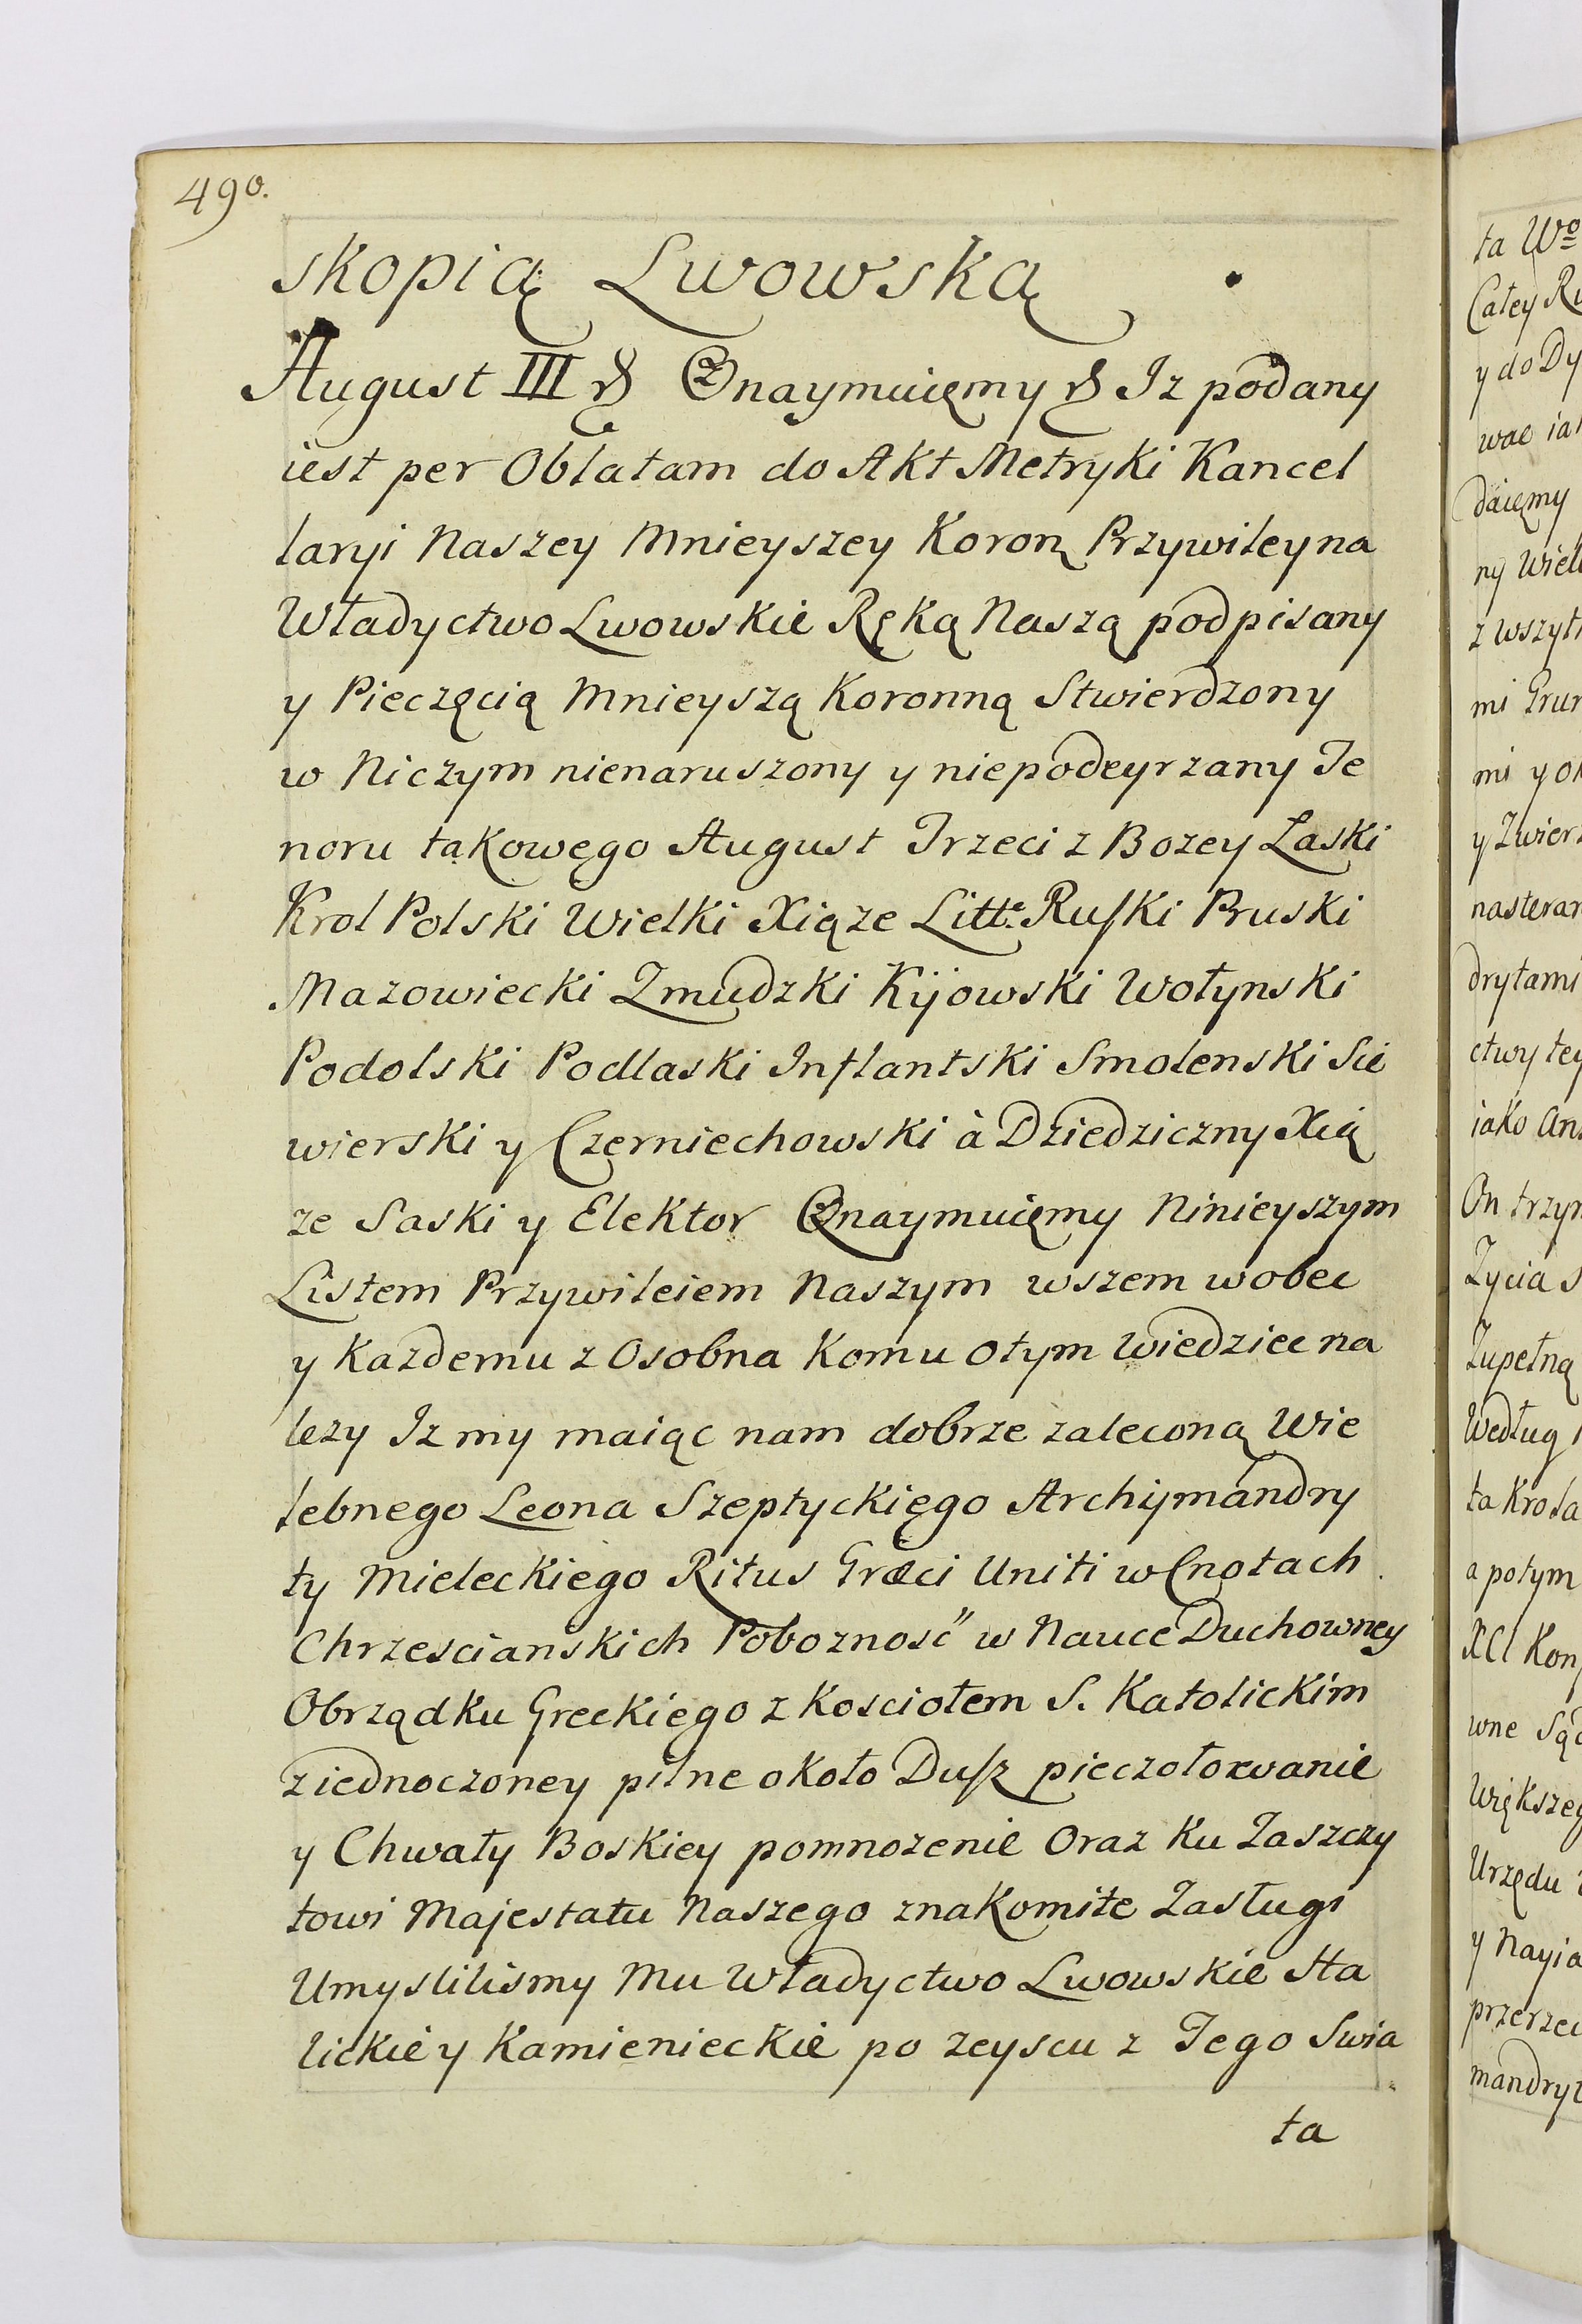 490.
skopią Lwowską
August III & Oznaymuięmy & Iz podany
iest per Oblatam do Akt Metryki Kancel
laryi Naszey Mnieyszey Koron Przywiley na
Władyctwo Lwowskie Ręką Naszą podpisany
y Pieczęcią Mnieyszą Koronną Stwierdzony
w Niczym nienaruszony y niepodeyrzany Te
noru takowęgo August Trzeci z Bozey Laski
Krol Polski Wielki Xiąze Litte. Ruski Pruski
Mazowiecki Zmudzki Kijowski Wołynski
Podolski Podlaski Inflantski Smolenski Sie
wierski y Czerniechowski à Dziedziczny Xią
ze Saski y Elektor Oznaymuięmy Ninieyszym
Listem Przywileiem Naszym wszem wobec
y Kazdemu z Osobna Komu otym Wiedziec na
lezy Iz my maiąc nam dobrze zaleconą Wie
lebnego Leona Szeptyckięgo Archymandry
ty Mieleckiego Ritus Græci Uniti w Cnotach
Chrzescianskich Poboznosć w Nauce Duchowney
Obrządku Greckięgo z Kosciołem S. Katolickim
ziednoczoney pilne około Dusz pieczołowanie
y Chwały Boskiey pomnozenie Oraz Ku Zaszczy
towi Majestatu Naszego znakomite Zasługi
Umyslilismy Mu Władyctwo Lwowskie Ha
lickie y Kamienieckie po zeyscu z Tego Swia
ta
ta Wo
Całey Ru
y do Dy
wac iak
daięmy
ny Wiel
z wszyt
mi Grun
mi y
y Zwier
nasterar
drytami
ctwy tey
iako
On trzym
Zycia s
Zupełną
Według
ta Krola
a potym
XCI Kon
wne Są
Większey
Urzędu
y Nayia
przerzec
mandry